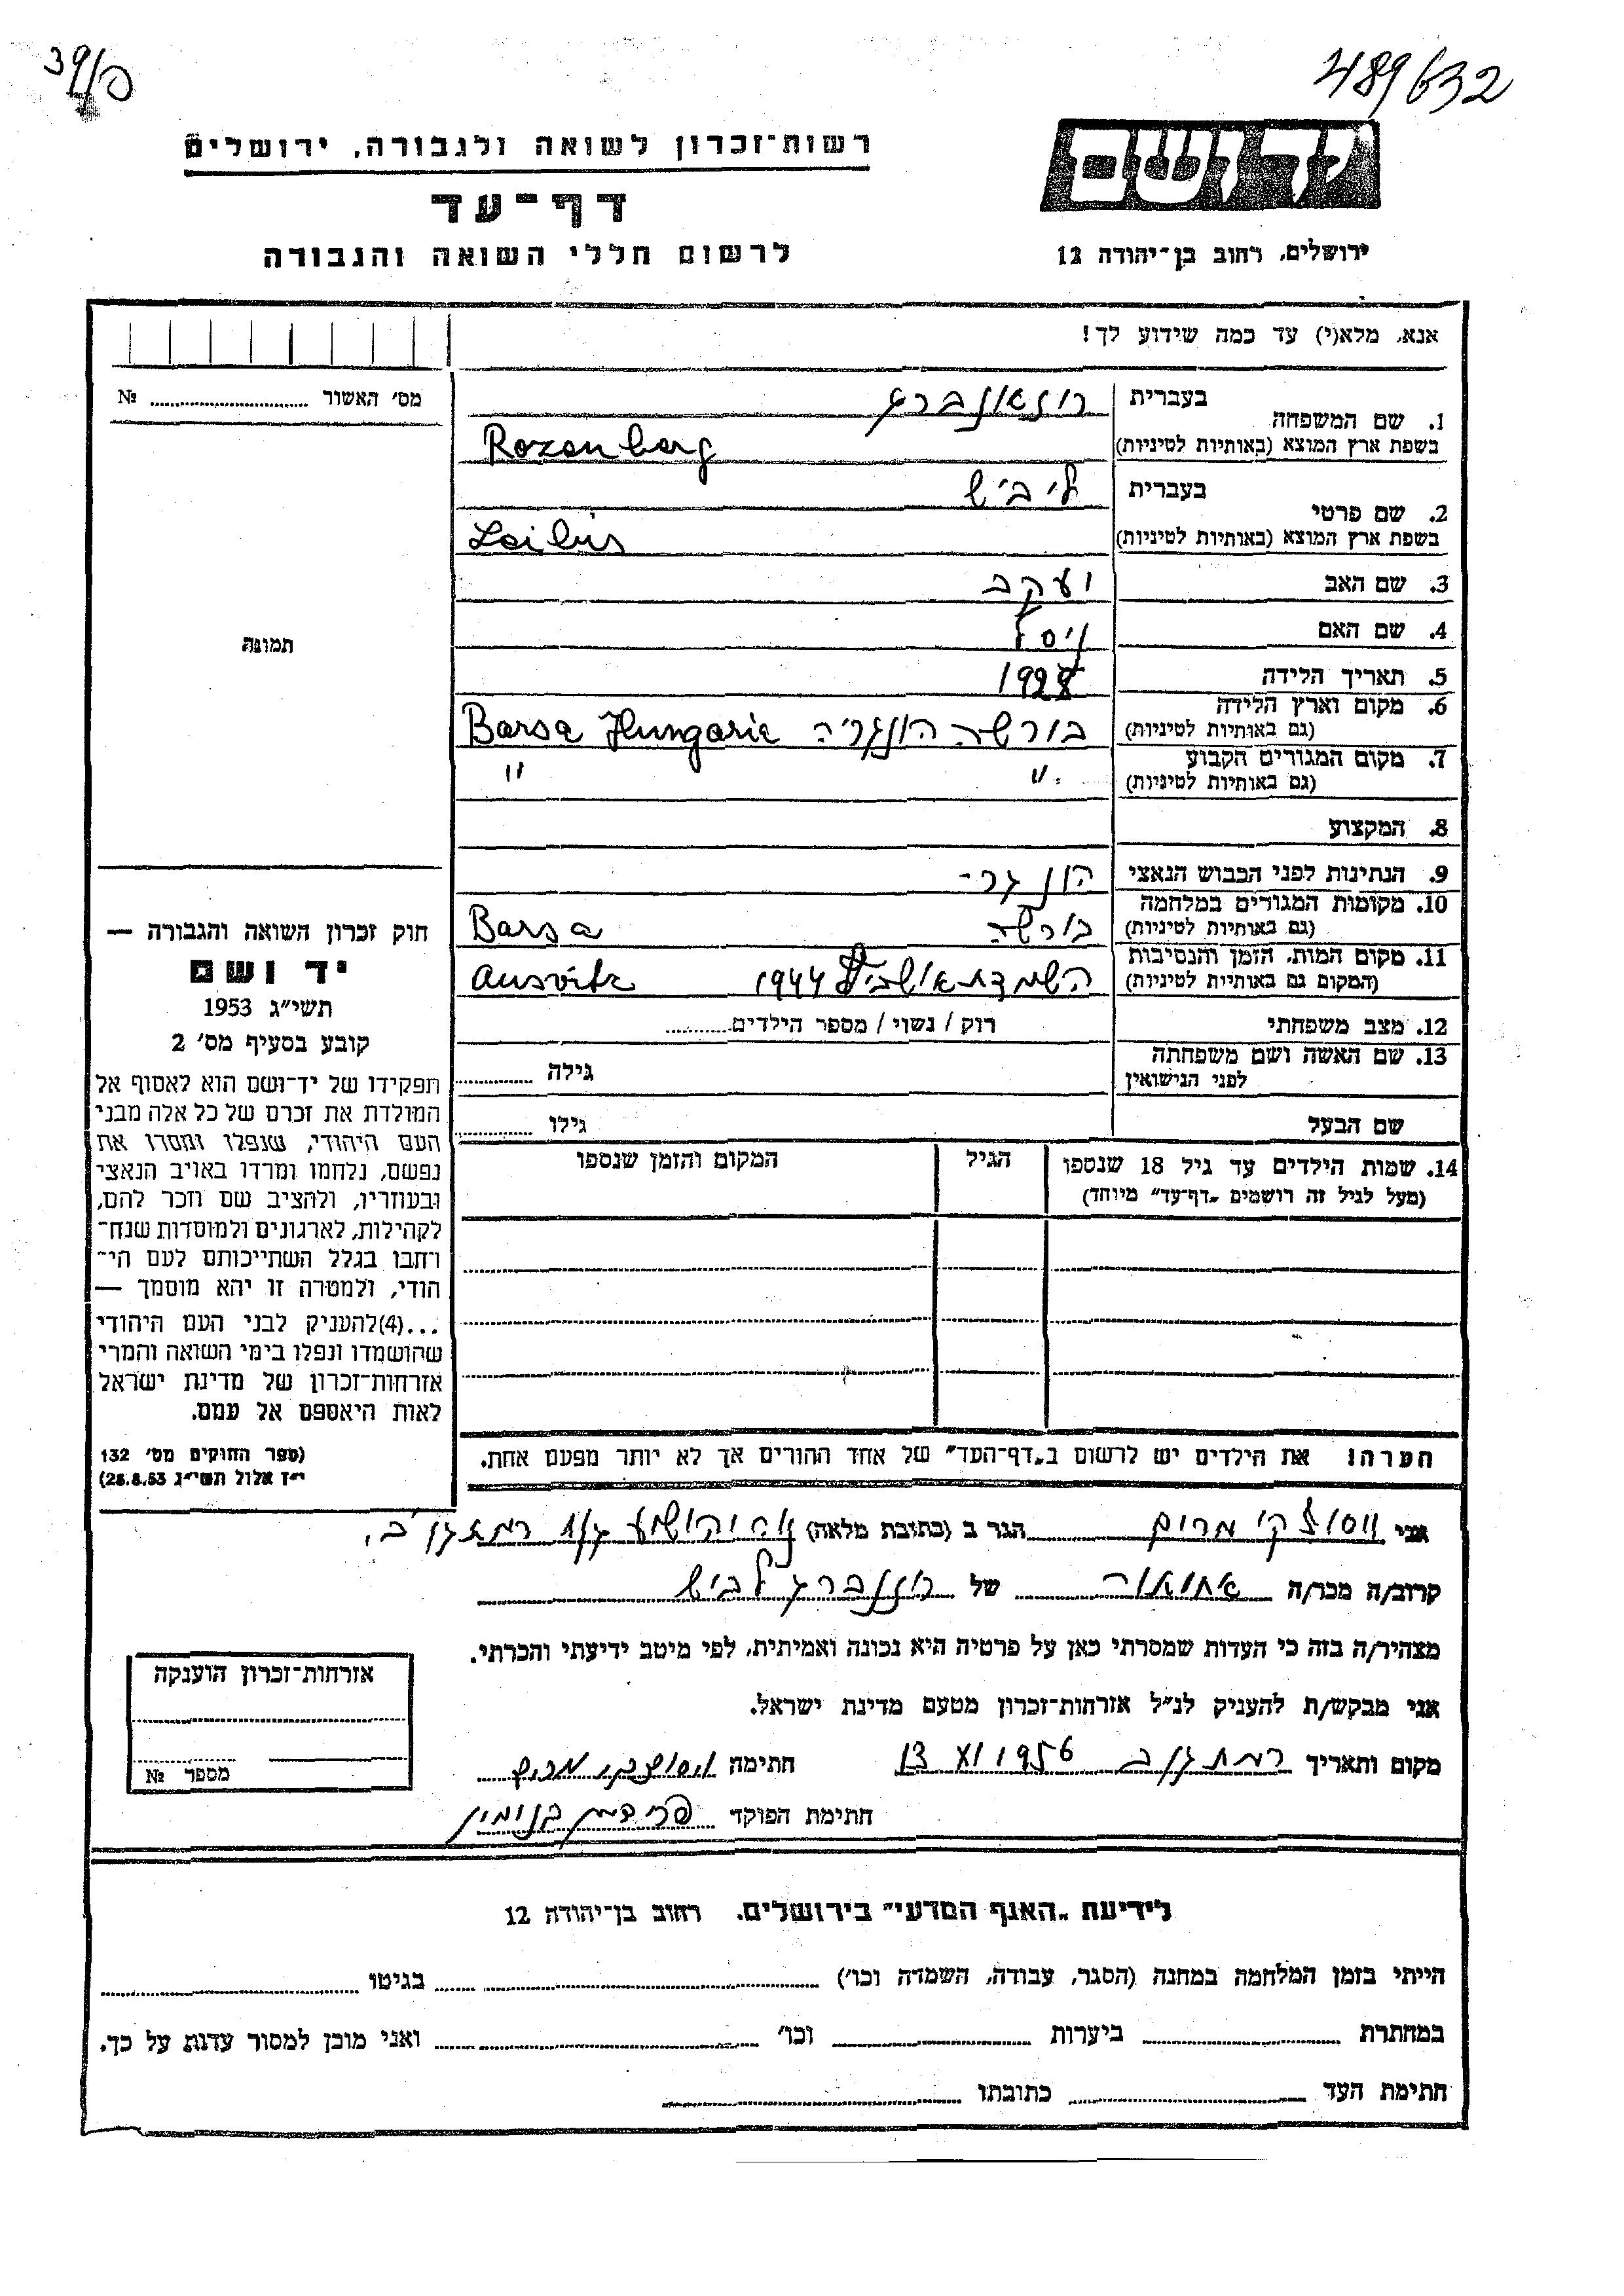 489632
39/פ
יד ושם
רשות־זכרון לשואה ולגבורה, ירושלים
דף־עד
ירושלים, רחוב בן־יהודה 12
לרשום חללי השואה והגבורה
אנא, מלא(י) עד כמה שידוע לך!
מס׳ האשור №
1. שם המשפחה
בעברית
בשפת ארץ המוצא (באותיות לטיניות)
Rozenberg
2. שם פרטי
בעברית ליביש
בשפת ארץ המוצא (באותיות לטיניות)
Leibis
3. שם האב יעקב
4. שם האם
5. תאריך הלידה 1928
6. מקום וארץ הלידה
(גם באותיות לטיניות)
בורשה הונגריה Barsa Hungarie
7. מקום המגורים הקבוע
(גם באותיות לטיניות)
" "
8. המקצוע
9. הנתינות לפני הכבוש הנאצי הונגרי־
10. מקומות המגורים במלחמה
(גם באותיות לטיניות)
בורשה Barsa
11. מקום המות, הזמן והנסיבות
(המקום גם באותיית לטיניות)
השמדת אושביץ 1944 Ausvitz
12. מצב משפחתי רוק / נשוי / מספר הילדים
13. שם האשה ושם משפחתה
לפני הנישואין
גילה
שם הבעל גילו
14. שמות הילדים עד גיל 18 שנספו
(מעל לגיל זה רושמים „דף־עד״ מיוחד)
הגיל
המקום והזמן שנספו
הערה: את הילדים יש לרשום ב„דף־העד״ של אחד ההורים אך לא יותר מפעם אחת.
תמונה
חוק זכרון השואה והגבורה —
יד ושם
תשי״ג 1953
קובע בסעיף מס׳ 2
תפקידו של יד־ושם הוא לאסוף אל
המולדת את זכרם של כל אלה מבני
העם היהודי, שנפלו ומסרו את
נפשם, נלחמו ומרדו באויב הנאצי
ובעוזריו, ולהציב שם וזכר להם,
לקהילות, לארגונים ולמוסדות שנח־
רחבו בגלל השתייכותם לעם הי־
הודי, ולמטרה זו יהא מוסמך —
...(4)להעניק לבני העם היהודי
שהושמדו ונפלו בימי השואה והמרי
אזרחות־זכרון של מדינת ישראל
לאות היאספם אל עמם.
(ספר החוקים מס׳ 132
י״ז אלול תשי״ג 28.8.53)
אני ווסולקי מרים הגר ב (כתובת מלאה) רמת גן ב׳.
קרוב/ה מכר/ה של רוזנברג ליביש
מצהיר/ה בזה כי העדות שמסרתי כאן על פרטיה היא נכונה ואמיתית, לפי מיטב ידיעתי והכרתי.
אני מבקש/ת להעניק לנ״ל אזרחות־זכרון מטעם מדינת ישראל.
מקום ותאריך רמת גן ב 1956 חתימה וסולקי מרים
חתימת הפוקד פרידמן בנימין
אזרחות־זכרון הוענקה
מספר №
לידיעת „האגף המדעי״ בירושלים, רחוב בן־יהודה 12
הייתי בזמן המלחמה במחנה (הסגר, עבודה, השמדה וכו׳) בגיטו
במחתרת ביערות וכו׳ ואני מוכן למסור עדות על כך.
חתימת העד כתובתו